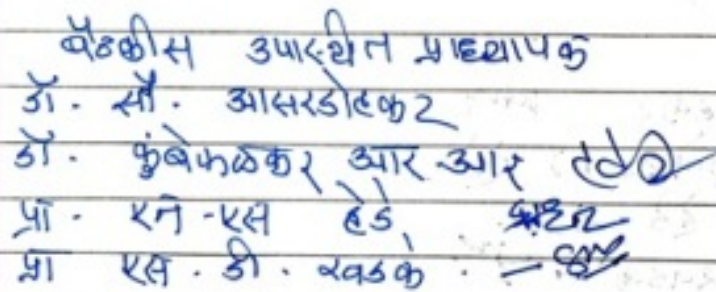 बैठकीस उपास्थीत प्राध्यापक
डॉ. सौ. आसरडोहकर
डॉ. कुंबेफळकर आर-आर
प्रा. एन-एस हेडे
प्रा एस. डी. खडके